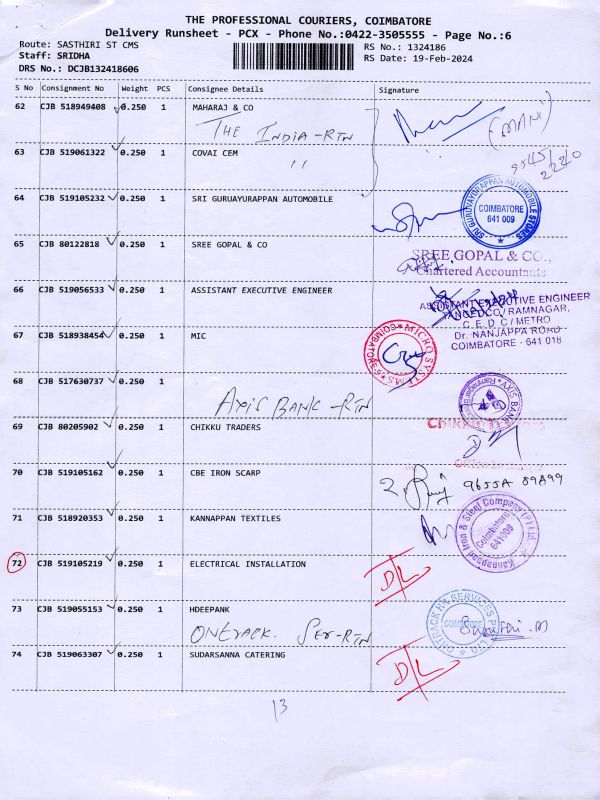 THE PROFESSIONAL COURIERS, COIMBATORE
Delivery Runsheet - PCX - Phone No.:0422-3505555 - Page No.:6
Route: SASTHIRI ST CMS RS No.: 1324186
Staff: SRIDHA RS Date: 19-Feb-2024
DRS No.: DCJB132418606
S No Consignment No Weight PCS Consignee Details Signature
62 CJB 518949408 0.250 1 MAHARAJ & CO
THE INDIA-RTN
(MANI)
63 CJB 519061322 0.250 1 COVAI CEM
''
64 CJB 519105232 0.250 1 SRI GURUAYURAPPAN AUTOMOBILE
SRI GURUVAYURAPPAN AUTOMOBILE STORES
COIMBATORE
641 009
65 CJB 80122818 0.250 1 SREE GOPAL & CO
SREE GOPAL & CO.,
Chartered Accountants
66 CJB 519056533 0.250 1 ASSISTANT EXECUTIVE ENGINEER
ASSISTANT EXECUTIVE ENGINEER
TANGEDCO / RAMNAGAR,
C.E.D.C/METRO
Dr. NANJAPPA ROAD
COIMBATORE - 641 018
67 CJB 518938454 0.250 1 MIC
MICRO SYSTEMS
68 CJB 517630737 0.250 1
AXIS BANK-RTN
AXIS BANK
69 CJB 80205902 0.250 1 CHIKKU TRADERS
CHIKKU
70 CJB 519105162 0.250 1 CBE IRON SCARP
9655A 89899
71 CJB 518920353 0.250 1 KANNAPPAN TEXTILES
Kannappan Iron & Steel Company (P) Ltd.
Coimbatore
641009
72 CJB 519105219 0.250 1 ELECTRICAL INSTALLATION
D/L
73 CJB 519055153 0.250 1 HDEEPANK
ONTRACK HR SERVICES P LTD
COIMBATORE
74 CJB 519063307 0.250 1 SUDARSANNA CATERING
D/L
13